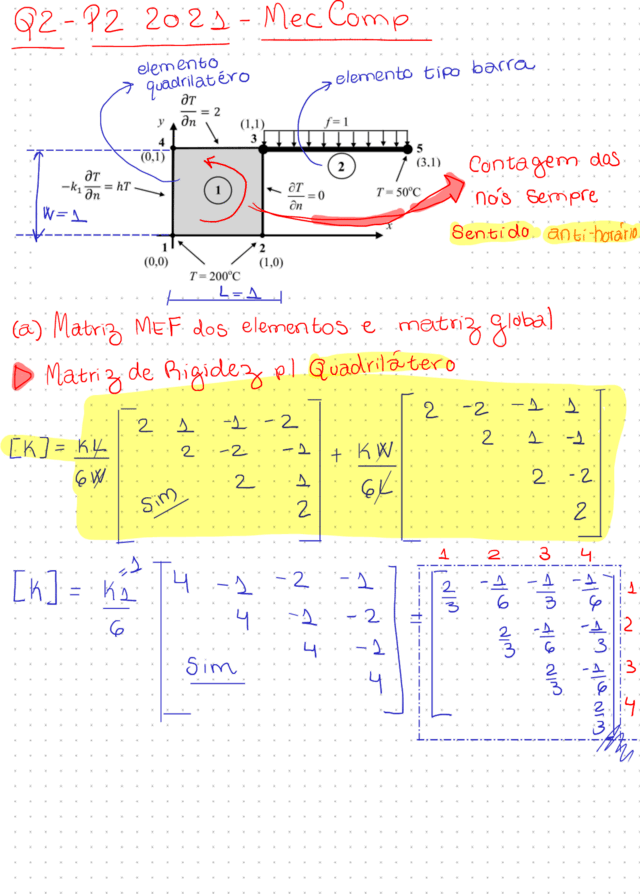 Q2 - P2 2021 - MecComp
elemento
quadrilatéro
elemento tipo barra
∂T/∂n = 2
y
4
(0,1)
(1,1)
3
f = 1
5
(3,1)
2
T = 50°C
-k₁ ∂T/∂n = hT
1
∂T/∂n = 0
W = 1
x
1
(0,0)
2
(1,0)
T = 200°C
L = 1
Contagem dos
nós sempre
sentido anti-horário
(a) Matriz MEF dos elementos e matriz global
Matriz de Rigidez p/ Quadrilátero
[K] = KL/6W [2 1 -1 -2 + KW/6L [2 -2 -1 1
2 -2 -1 2 1 -1
Sim 2 1 2 -2
2] 2]
1 2 3 4
[K] = K1 =1/6 [4 -1 -2 -1 = [2/3 -1/6 -1/3 -1/6 1
4 -1 -2 2/3 -1/6 -1/3 2
Sim 4 -1 2/3 -1/6 3
4] 2/3] 4